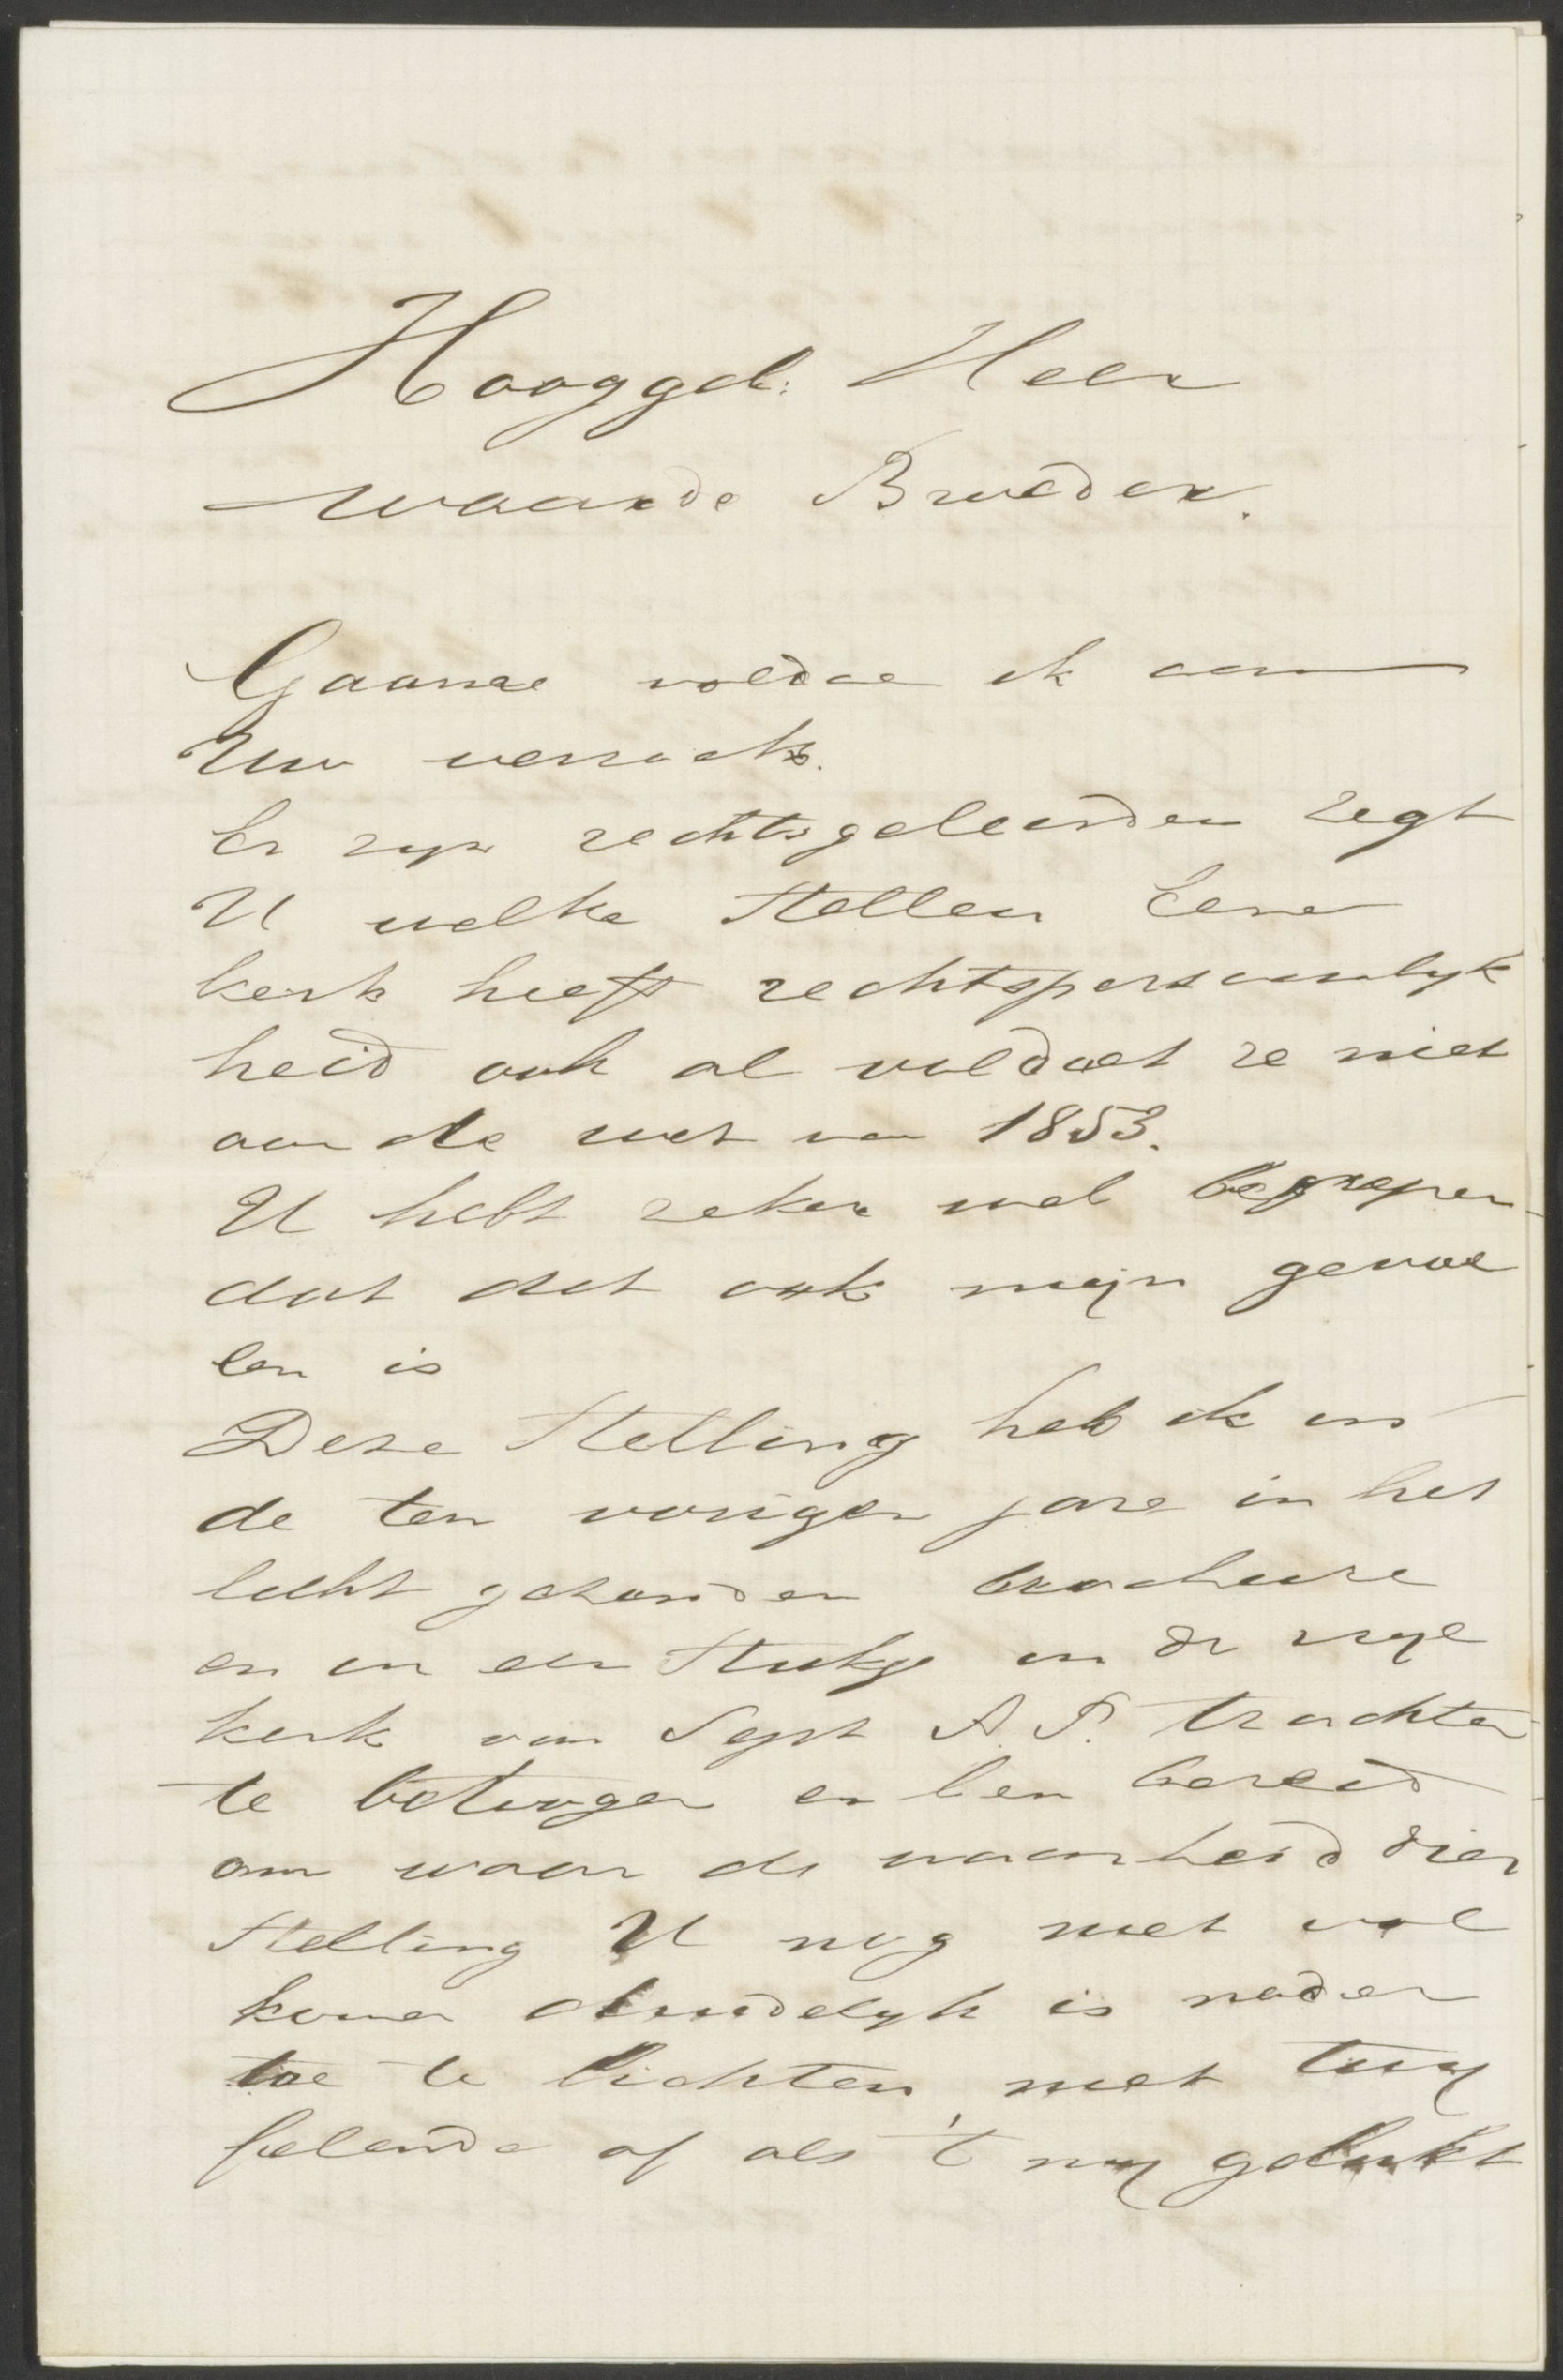 Hooggel. Heer
waarde Broeder.
Gaarne voldoe ik aan
Uw verzoek.
Er zyn rechtsgeleerden zegt
U welke stellen Eene
kerk heeft rechtspersoonlyk
heid ook al voldoet ze niet
aan de wet van 1853.
U hebt zeker wel begrepen
dat dit ook mijn gevoe
len is
Deze stelling heb ik in
de ten vorigen jare in het
licht gezonden brochure
en in een stukje in de vrye
kerk van Sept A. P. trachten
te betoogen en ben bereid
om waar de waarheid dier
stelling U nog niet vol
komen duidelyk is nader
toe te lichten, niet twy
felende of als 't my gelukt